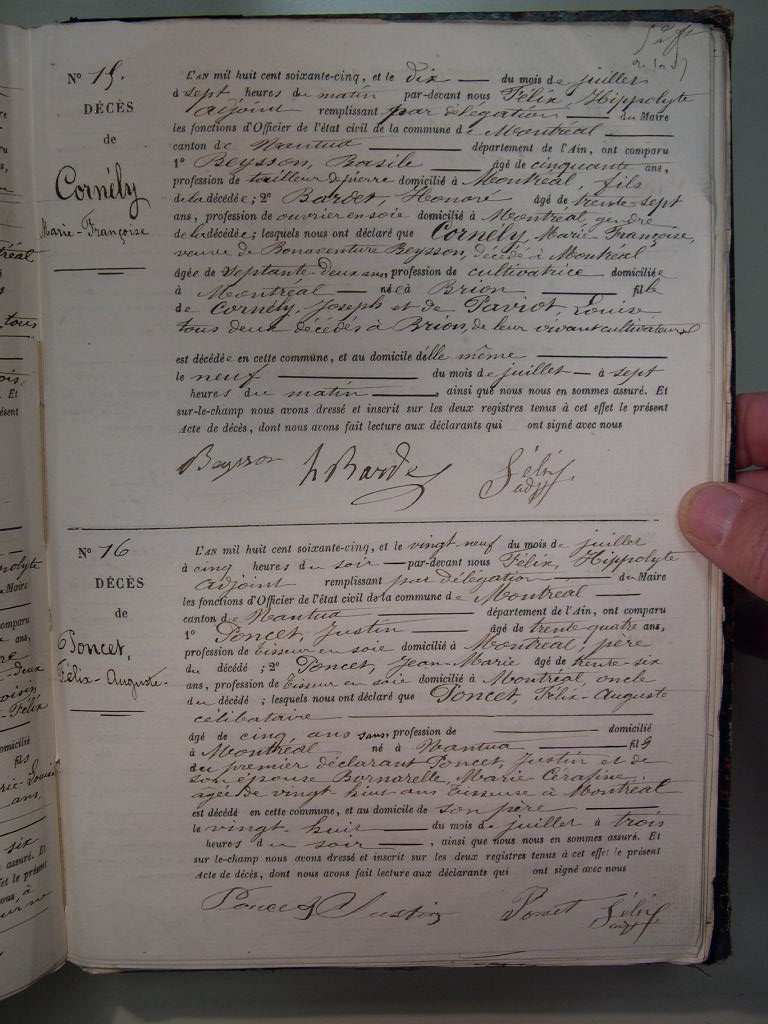 N° 15.
DÉCÈS
de
Cornély
Marie-Françoise
L'AN mil huit cent soixante-cinq, et le dix du mois de juillet
à sept heures du matin par-devant nous Félix, Hippolyte
adjoint remplissant par délégation du Maire
les fonctions d'Officier de l'état civil de la commune de Montréal
canton de Nantua département de l'Ain, ont comparu
1° Beysson, Basile âgé de cinquante ans,
profession de tailleur de pierre domicilié à Montréal, fils
de la décédée; 2° Bardet, Honoré âgé de trente-sept
ans, profession de ouvrier en soie domicilié à Montréal, gendre
de la décédée; lesquels nous ont déclaré que Cornély, Marie-Françoise,
veuve de Bonaventure Beysson, décédé à Montréal
âgée de septante-deux ans, profession de cultivatrice domiciliée
à Montréal née à Brion fille
de Cornély, Joseph et de Paviot, Louise
tous deux décédés à Brion, de leur vivant cultivateurs
est décédée en cette commune, et au domicile d'elle même
le neuf du mois de juillet à sept
heures du matin, ainsi que nous nous en sommes assuré. Et
sur-le-champ nous avons dressé et inscrit sur les deux registres tenus à cet effet le présent
Acte de décès, dont nous avons fait lecture aux déclarants qui ont signé avec nous
Beysson h Bardet Félix adj
N° 16
DÉCÈS
de
Poncet,
Félix-Auguste
L'AN mil huit cent soixante-cinq, et le vingt-neuf du mois de juillet
à cinq heures du soir par-devant nous Félix, Hippolyte
adjoint remplissant par délégation du Maire
les fonctions d'Officier de l'état civil de la commune de Montréal
canton de Nantua département de l'Ain, ont comparu
1° Poncet, Justin âgé de trente-quatre ans,
profession de tisseur en soie domicilié à Montréal, père
du décédé; 2° Poncet, Jean-Marie âgé de trente-six
ans, profession de tisseur en soie domicilié à Montréal, oncle
du décédé; lesquels nous ont déclaré que Poncet, Félix-Auguste
célibataire
âgé de cinq ans sans profession de domicilié
à Montréal né à Nantua fils
du premier déclarant Poncet, Justin et de
son épouse Bornarelle, Marie Cérapine,
âgée de vingt huit ans tisseuse à Montréal
est décédé en cette commune, et au domicile de son père
le vingt-huit du mois de juillet à trois
heures du soir, ainsi que nous nous en sommes assuré. Et
sur le-champ nous avons dressé et inscrit sur les deux registres tenus à cet effet le présent
Acte de décès, dont nous avons fait lecture aux déclarants qui ont signé avec nous
Poncet Justin Ponset Félix adj